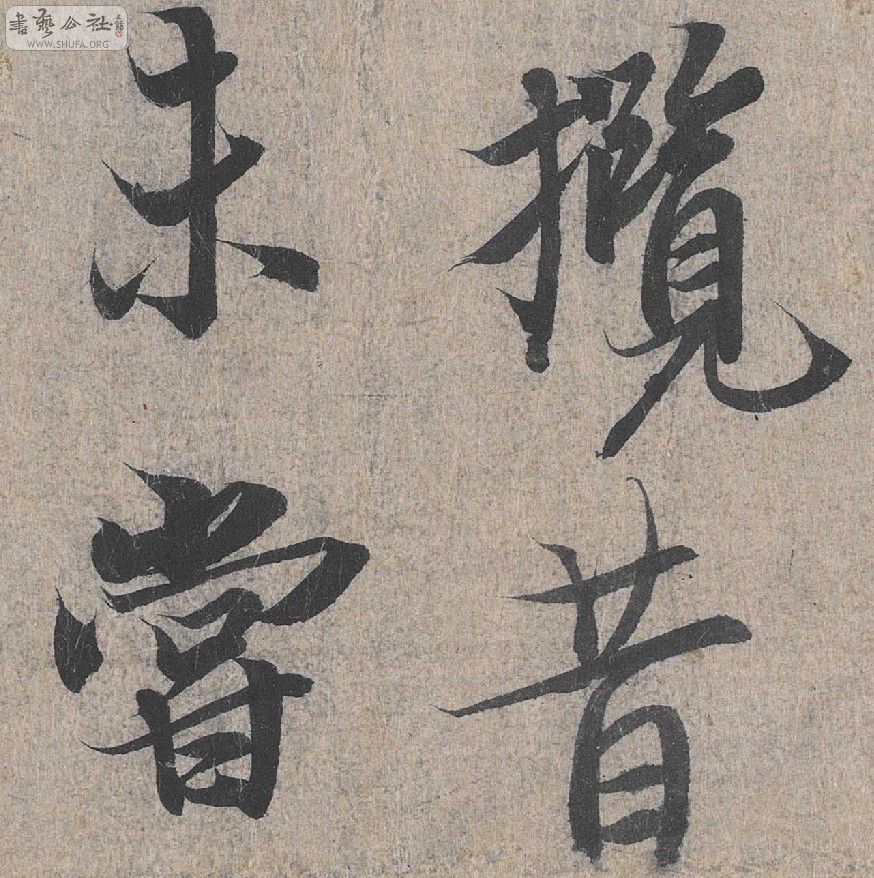 攬昔
未嘗
書藝公社
WWW.SHUFA.ORG